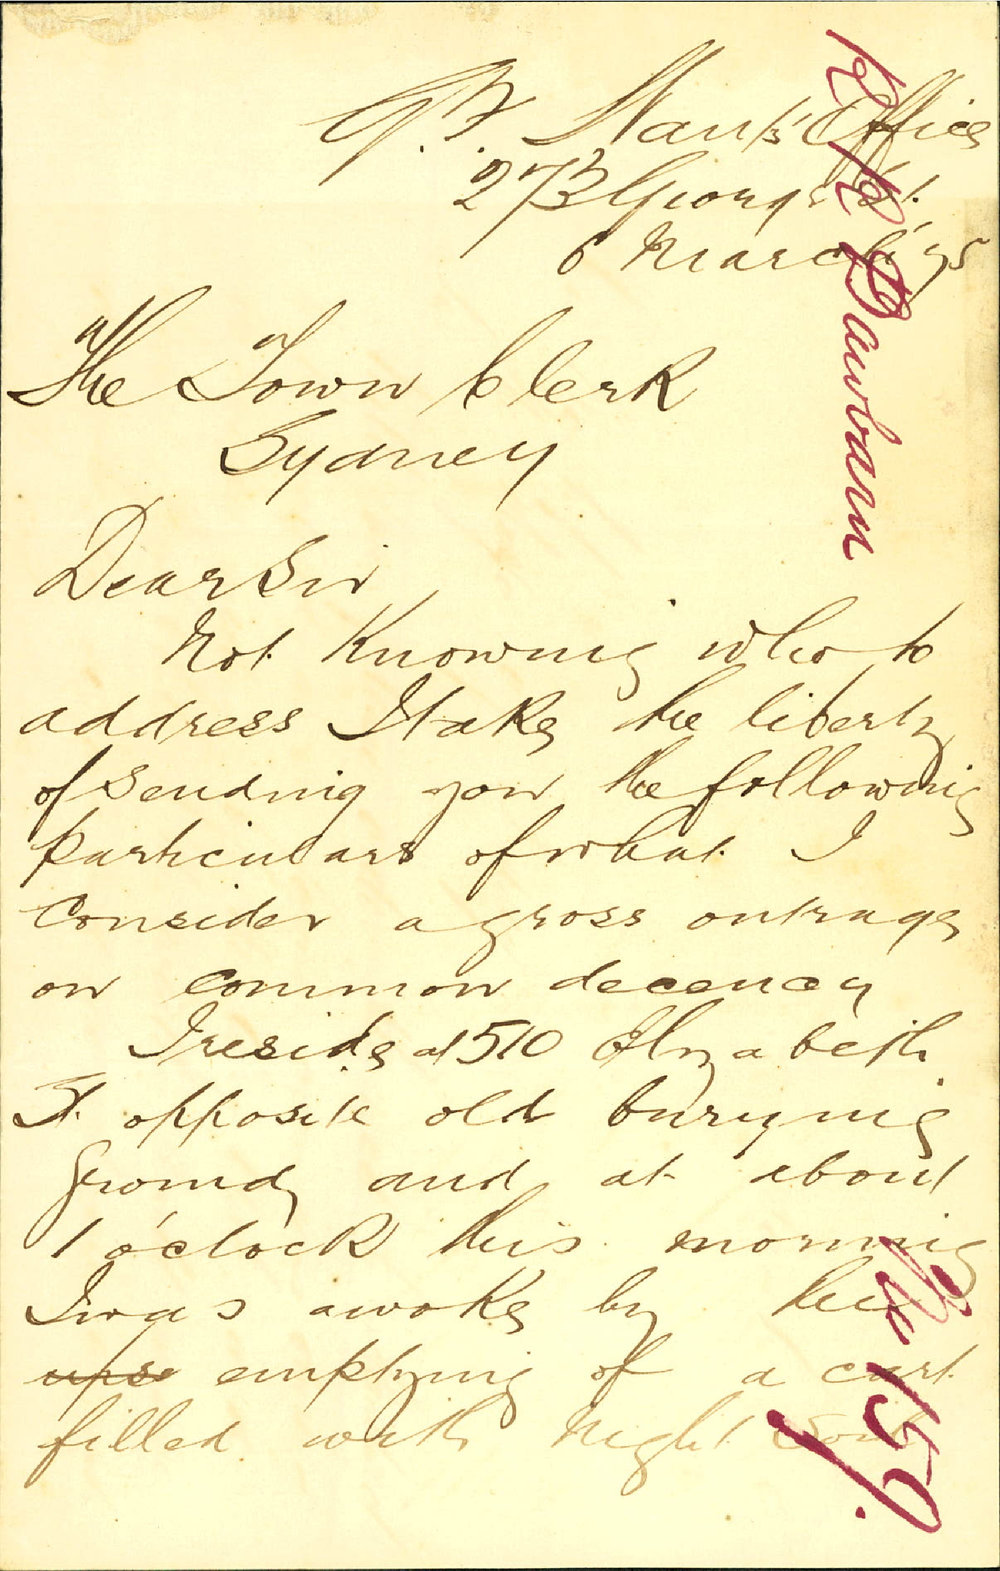 Office
273 George St.
6 March '75
The Town Clerk
Sydney
Dear Sir
Not Knowing who to
address I take the liberty
of sending you the following
particulars of what I
Consider a gross outrage
on common decency
I reside at 510 Elizabeth
St. opposite old burying
Ground, and at about
1 o'clock this morning
I was awoke by the
emptying of a cart
filled with Night Soil
R R Bawbarn
No 159.